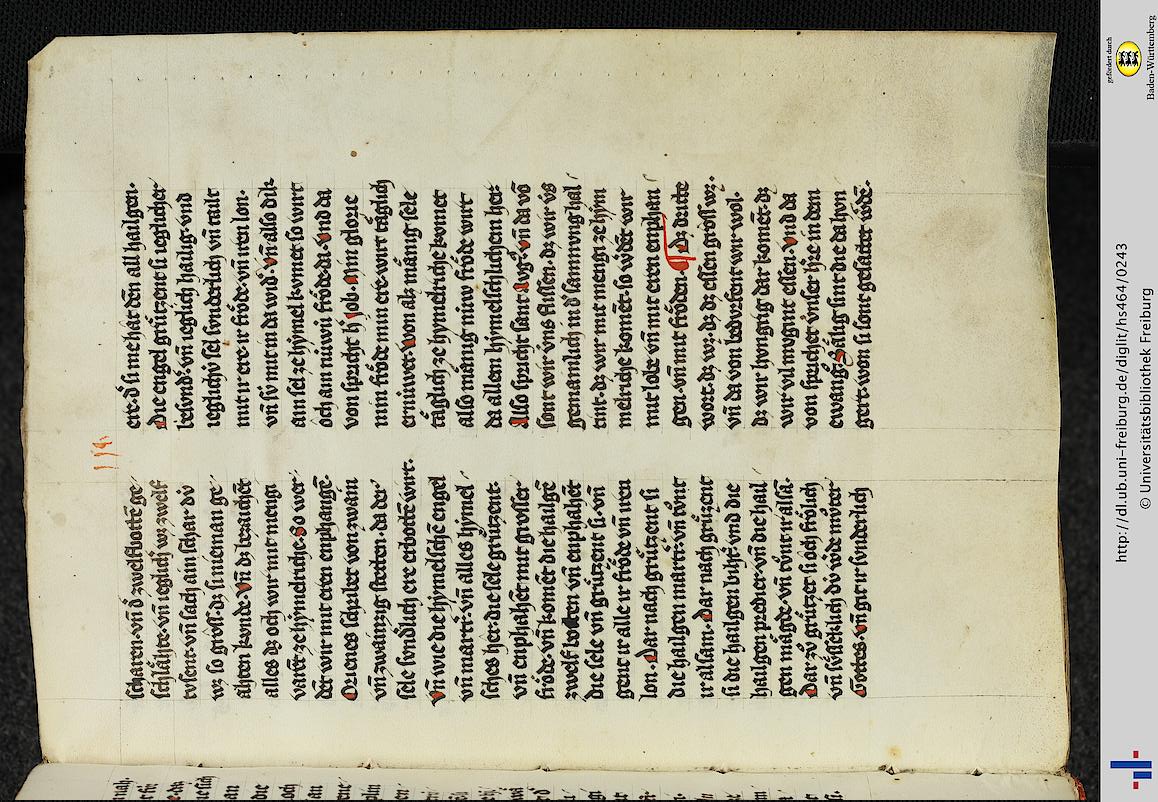 scharen · vn̄ d͛ zwelfbottē ge
schlähte · vn̄ ieglichs wz zwelf
tvsent · vn̄ sach ain schar dv
wz so gross · dz si nieman ge
ahten konde · Vn̄ dz bezaichēt
alles dz och wir mit mengi
varēt ze hymelriche · So wer
dēt wir mit eren enphangē ·
Orienes schribet von zwain
vn̄ zwainzig steten · da der
sele sond͛lich ere erbottē wirt ·
Vn̄ wie die hymelschē engel
vn̄ martr͛ · vn̄ alles hymel
sches her · die sele grützent ·
vn̄ enphahēt mit grosser
fröde · vn̄ komēt die hailgē
zwelf botten vn̄ enphahēt
die sele vn̄ grützent si · von
gent ir alle ir fröde vn̄ iren
lon · Dar nach grützent si
die hailgen martr͛ · vn̄ tv̊nt
ir alsam · Dar nach grüzent
si die hailgen biht͛ · vnd die
hailgen predier · vn̄ die hail
gen mägde · vn̄ tv̊nt ir alsā ·
Dar zv̊ grützet si och frölich
vn̄ süsseklich dv̍ wirdē mv̊ter
Gottes · Vn̄ git ir sunderlich
114
ere · d͛ si me hat dēn all hailgen ·
Die engel grützent si ieglicher
besund͛ · vn̄ ieglich hailig · vnd
ieglichv̍ sel sunderlich vn̄ tailt
mit ir ere · ir fröde · vn̄ iren lon ·
vn̄ sv̍ mit in da wid͛ · vn̄ also dik
ain sel ze hymel komet · so wirt
och ain nüwü fröde da · Vnd da
von spricht h͛ job · Min glorie
min fröde min ere · wirt täglich
erniwert · Won als mänig sele
täglich ze hymelriche komet
also mänig nüw fröde wirt
da allem hymelschlichem her ·
Also spricht sant Avg͛ · vn̄ da vō
sont wir vns flissen · dz wir vs
gemainlich in d͛ samnvng hal
tint · dz wir mit mengi ze hym
melriche komēt · so wdēt wir
mit lobe vn̄ mit eren enphan
gen · vn̄ mit fröden · ¶ Dz dritte
wort · dz wz · dz dz essen gross wz ·
vn̄ da von bedvrfent wir wol ·
dz wir hungrig dar komēt · dz
wir vil mvgint essen · Vnd da
von sprichet vnser h͛re in dem
ewangē · Sälig sint die da hvn
gert · won si sont gesattet wdē ·
http://dl.ub.uni-freiburg.de/diglit/hs464/0243
© Universitätsbibliothek Freiburg
gefördert durch
Baden-Württemberg